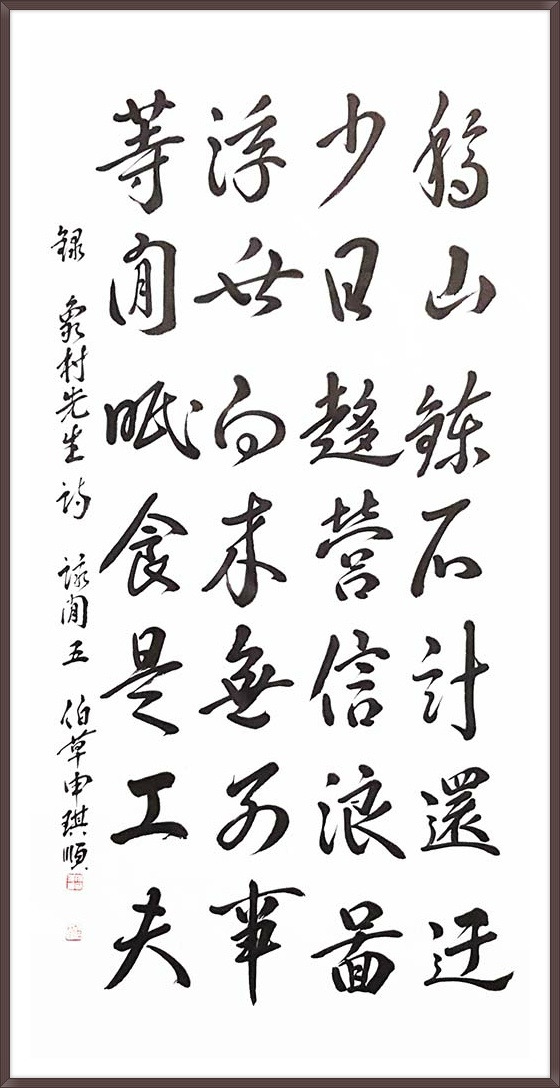 移山鍊石計還迂
少日趍營信浪圖
浮世向来無別事
等閒眠食是工夫
録 象村先生 詩 閒 五 伯草申琪順